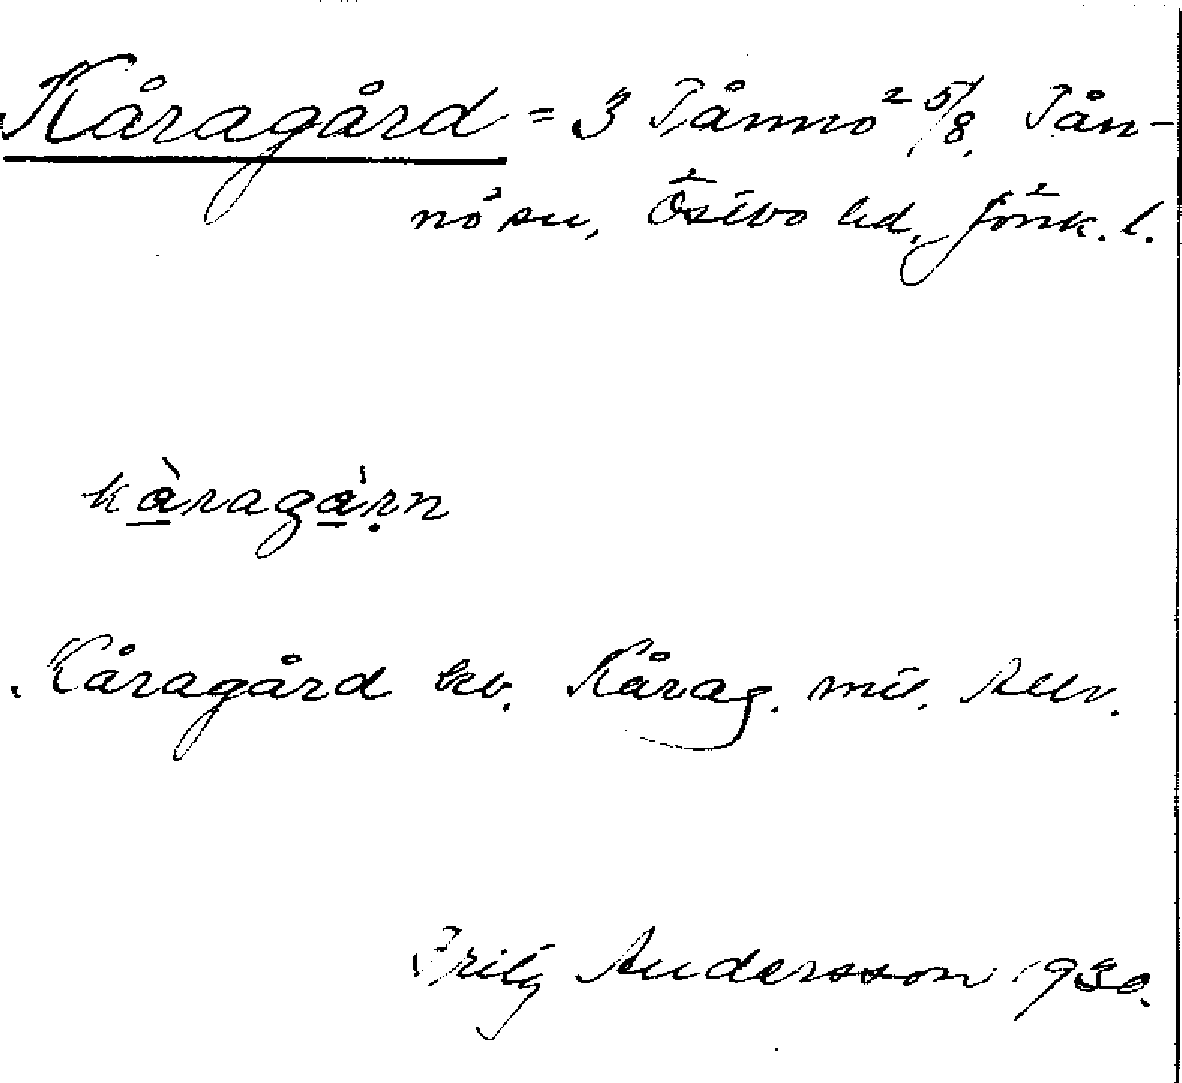 Kåragård = 3 Tånnö 2 5/8, Tån-
nö sn, Östbo hd, Jönk. l.
kàragárn
Kåragård hv. Kårag. mil.
Fritz Andersson 1930.